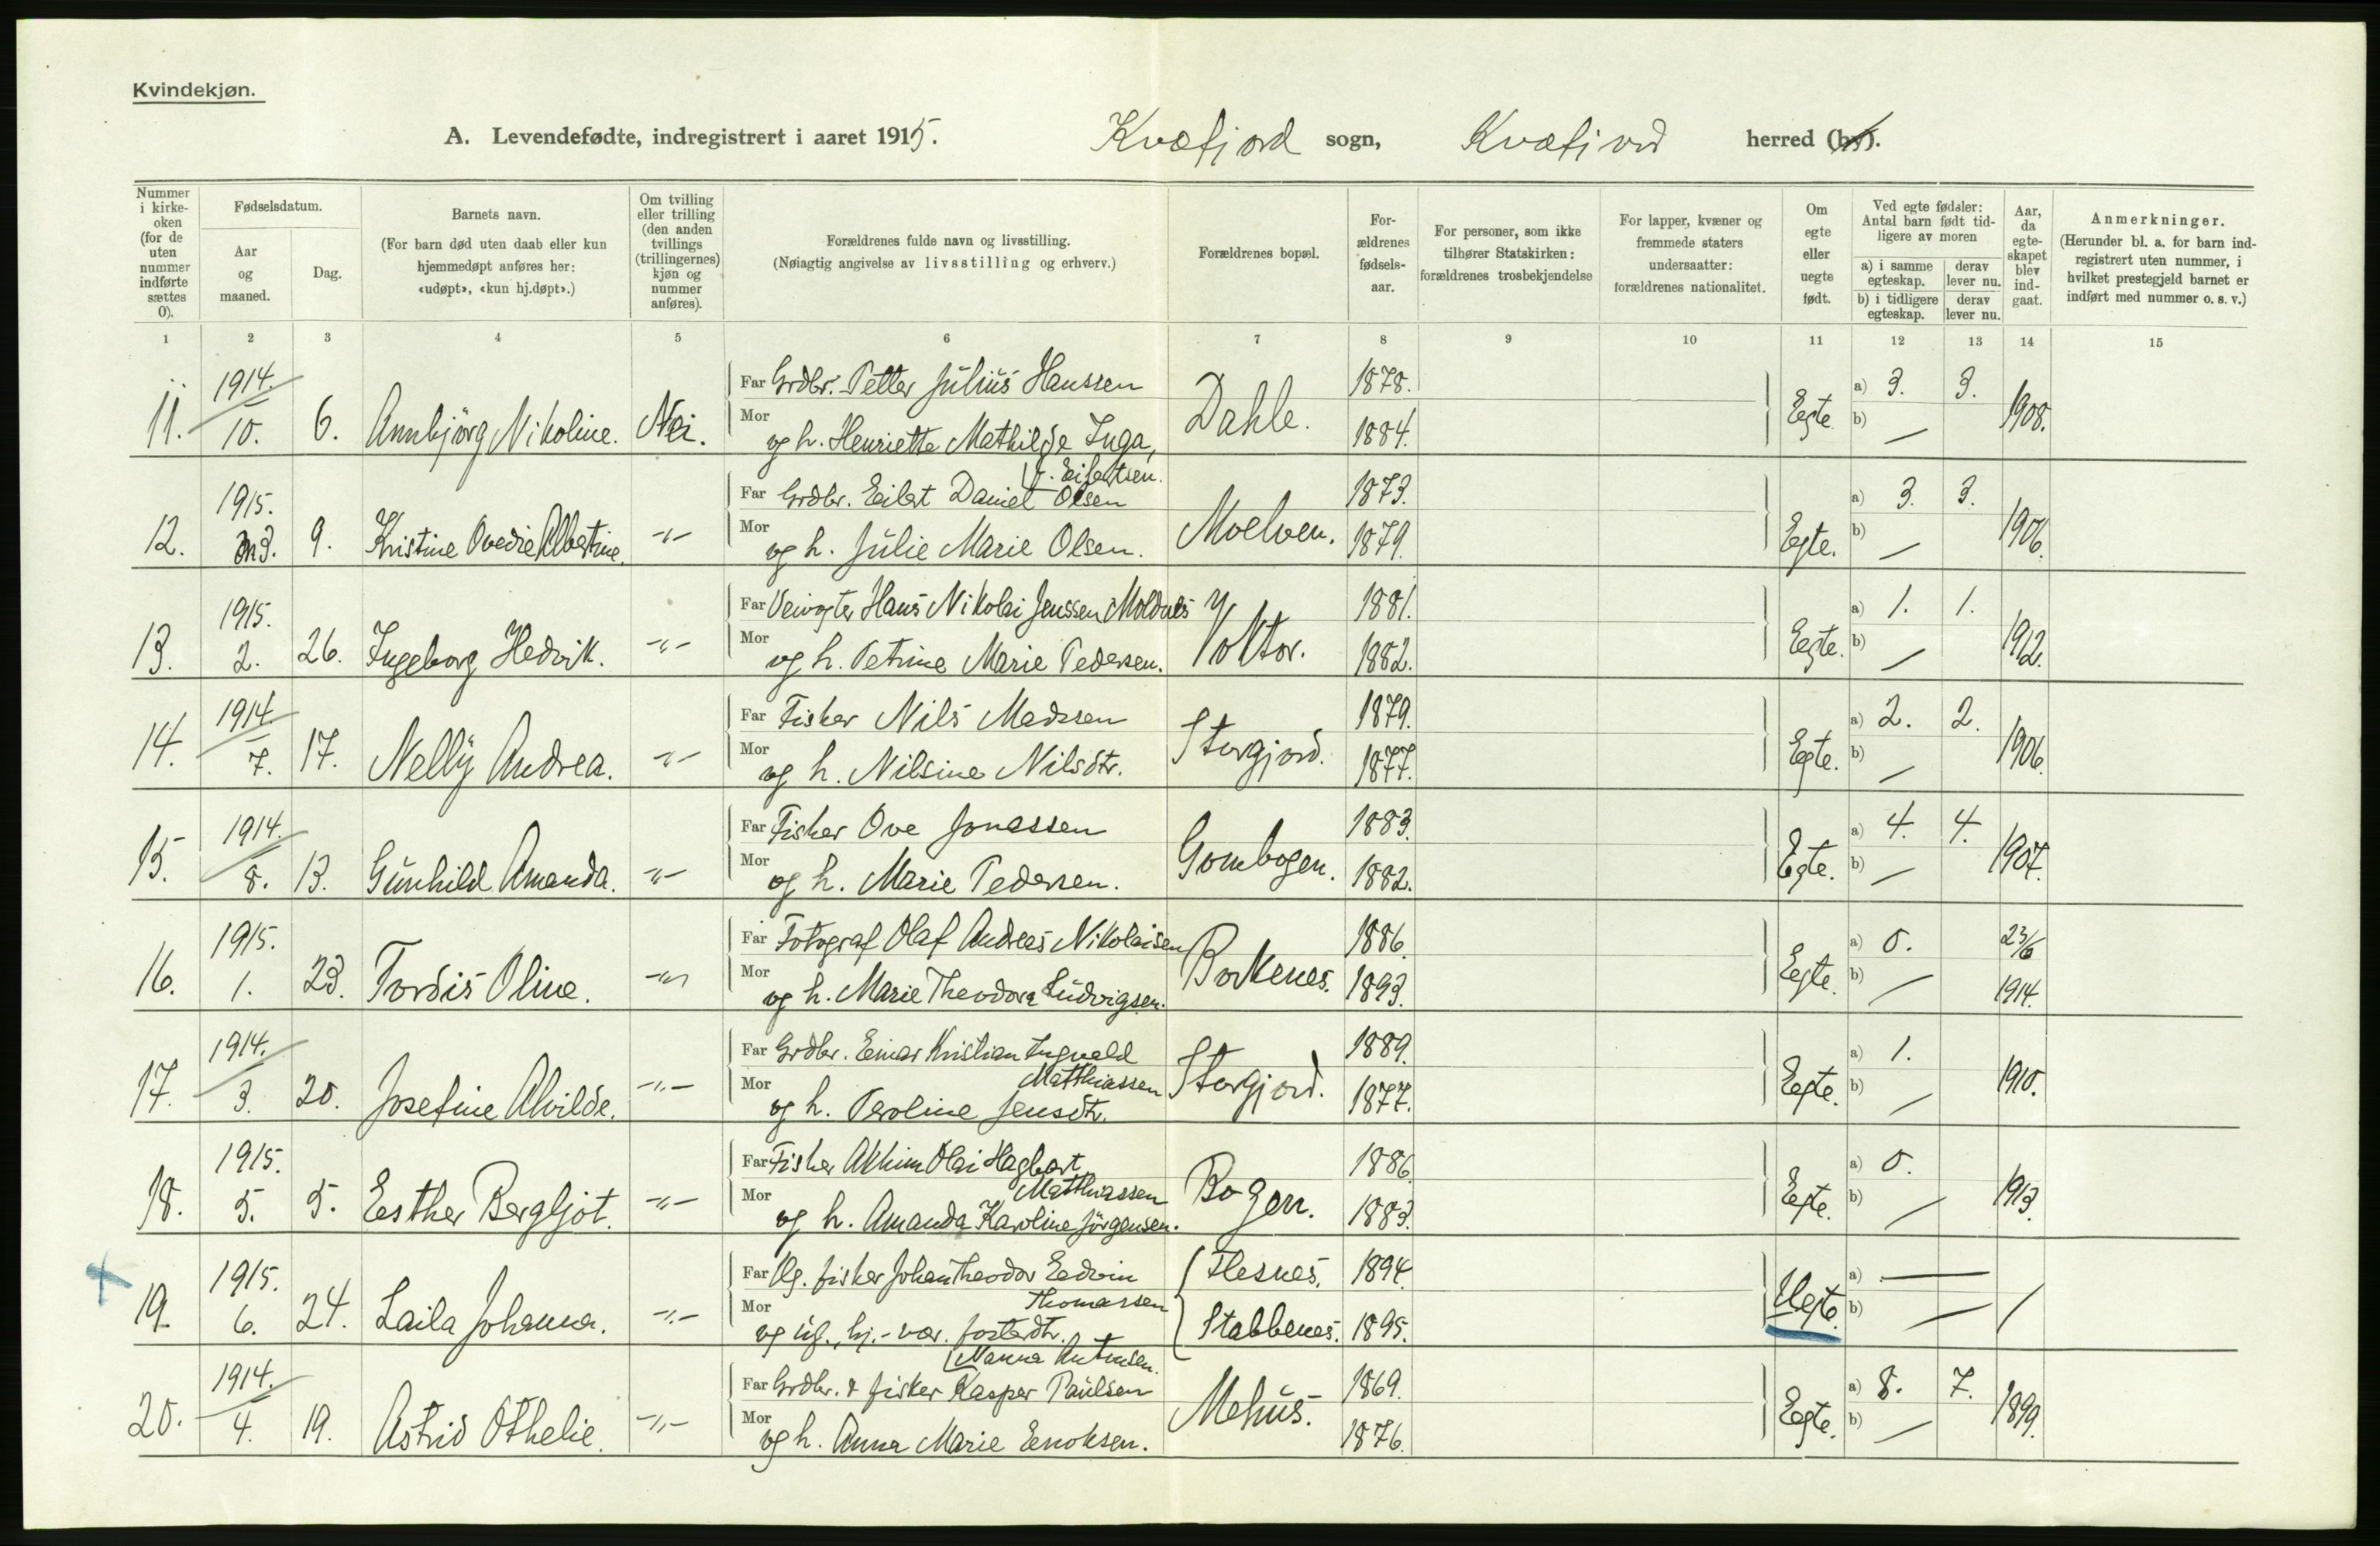 Kvindekjøn.
A. Levendefødte, indregistrert i aaret 1915. Kvæfjord sogn, Kvæfjord herred (by).
Nummer i kirke-oken (for de uten nummer indførte sættes 0).
Fødselsdatum.
Aar og maaned.
Dag.
Barnets navn.
(For barn død uten daab eller kun hjemmedøpt anføres her: «udøpt», «kun hj.døpt».)
Om tvilling eller trilling (den anden tvillings (trillingernes) kjøn og nummer anføres).
Forældrenes fulde navn og livsstilling.
(Nøiagtig angivelse av livsstilling og erhverv.)
Forældrenes bopæl.
For-ældrenes fødsels-aar.
For personer, som ikke tilhører Statskirken: forældrenes trosbekjendelse
For lapper, kvæner og fremmede staters undersaatter: forældrenes nationalitet.
Om egte eller uegte født.
Ved egte fødsler: Antal barn født tid-ligere av moren
a) i samme egteskap.
derav lever nu.
b) i tidligere egteskap.
derav lever nu.
Aar, da egte-skapet blev ind-gaat.
Anmerkninger.
(Herunder bl. a. for barn ind-registrert uten nummer, i hvilket prestegjeld barnet er indført med nummer o. s. v.)
1 2 3 4 5 6 7 8 9 10 11 12 13 14 15
1914. Far Grdbr. Petter Julius Hanssen 1878. a) 3. 3.
11. 10. 6. Annbjörg Nikoline. Nei. Mor og h. Henriette Mathilde Inga, Dahle. 1884. Egte b) — 1908.
f. Eilertsen.
1915. Far Grdbr. Eilert Daniel Olsen 1873. a) 3. 3.
12. 3. 9. Kristine Ovedie Albertine. -"- Mor og h. Julie Marie Olsen. Moelven. 1879. Egte. b) — 1906.
1915. Far Veivogter Hans Nikolai Jenssen Moldnes 1881. a) 1. 1.
13. 2. 26. Ingeborg Hedvik. -"- Mor og h. Petrine Marie Pedersen. Voktor. 1882. Egte. b) — 1912.
1914. Far Fisker Nils Madssen 1879. a) 2. 2.
14. 7. 17. Nelly Andrea. -"- Mor og h. Nilsine Nilsdtr. Storgjord. 1877. Egte. b) — 1906.
1914. Far Fisker Ove Jonassen 1883. a) 4. 4.
15. 8. 13. Gunhild Amanda. -"- Mor og h. Marie Pedersen. Gombogen. 1882. Egte. b) — 1907.
1915. Far Fotograf Olaf Andreas Nikolaisen 1886. a) 0. 23/6
16. 1. 23. Tordis Oline. -"- Mor og h. Marie Theodora Ludvigsen. Borkenes. 1893. Egte. b) — 1914.
1914. Far Grdbr. Einar Kristian Ingvald 1889. a) 1.
Matthiassen
17. 3. 20. Josefine Alvilde. -"- Mor og h. Peroline Jensdtr. Storgjord. 1877. Egte. b) — 1910.
1915. Far Fisker Akhim Olai Hagbart 1886. a) 0.
Matthiassen
18. 5. 5. Esther Bergljot. -"- Mor og h. Amanda Karoline Jörgensen. Bogen. 1883. Egte. b) — 1913.
1915. Far Ug. fisker Johan Theodor Edvin Flesnes. 1894. a) —
Thomassen
19. 6. 24. Laila Johanna. -"- Mor og ug., hj.-vær. fosterdtr. Stabbenes. 1895. Uegte. b) — /
Nanna Antonsen.
1914. Far Grdbr. & fisker Kasper Paulsen 1869. a) 8. 7.
20. 4. 19. Astrid Othelie. -"- Mor og h. Anna Marie Enoksen. Mehus. 1876. Egte. b) — 1899.